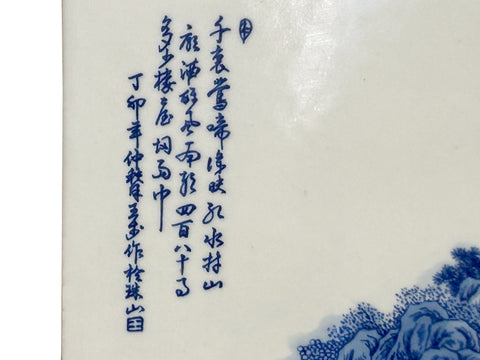 千裏鶯啼綠映紅水村山
廓酒旗風南朝四百八十寺
多少樓台烟雨中
丁卯年仲秋月王步作於珠山